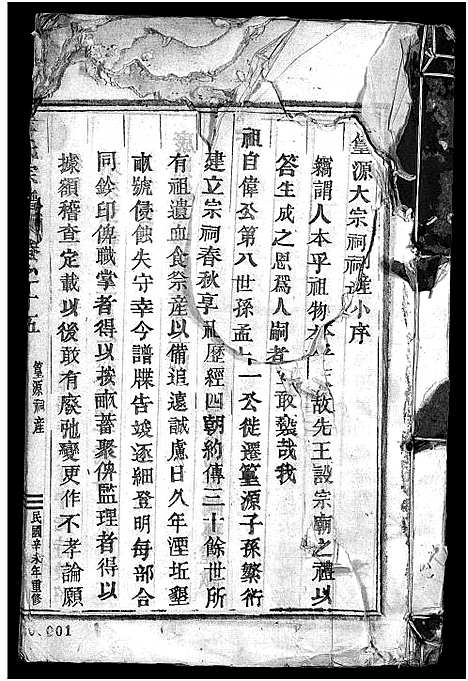 篁源大宗祠祠產小序
竊謂人本乎祖物本乎天故先王設宗廟之禮以
答生成之恩爲人嗣者敢褻哉我
祖自偉公第八世孫孟七一公徙遷篁源子孫繁衍
建立宗祠春秋享祀歷經四朝約傳三十餘世所
有祖遺血食祭產以備追遠誠慮日久年湮坵墾
畝號侵蝕失守幸今譜牒告竣逐細登明每部合
同鈐印俾職掌者得以按畝蓄聚俾監理者得以
據額稽查定載以後敢有廢弛變更作不孝論願
宗譜
卷六十五
篁源祠產
民國辛未年重修
001